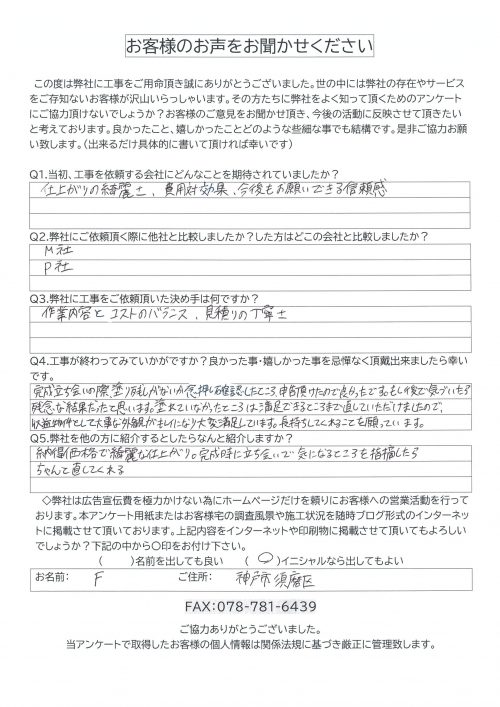 お客様のお声をお聞かせください
この度は弊社に工事をご用命頂き誠にありがとうございました。世の中には弊社の存在やサービス
をご存知ないお客様が沢山いらっしゃいます。その方たちに弊社をよく知って頂くためのアンケート
にご協力頂けないでしょうか？お客様のご意見をお聞かせ頂き、今後の活動に反映させて頂きたい
と考えております。良かったこと、嬉しかったことどのような些細な事でも結構です。是非ご協力お願
い致します。（出来るだけ具体的に書いて頂ければ幸いです）
Q1.当初、工事を依頼する会社にどんなことを期待されていましたか？
仕上がりの綺麗さ、費用対効果、今後もお願いできる信頼感
Q2.弊社にご依頼頂く際に他社と比較しましたか？した方はどこの会社と比較しましたか？
M社
P社
Q3.弊社に工事をご依頼頂いた決め手は何ですか？
作業内容とコストのバランス、見積りの丁寧さ
Q4.工事が終わってみていかがですか？良かった事・嬉しかった事を忌憚なく頂戴出来ましたら幸い
です。
完成立ち会いの際塗り残しがないか念押し確認したところ、頂けたので良かったです。もし後で気づいたら
残念な結果だったと思います。塗れていなかったところは満足できるところまで直していただけましたので、
収益物件として大事な外観がキレイになり大変満足しています。長持ちしてくれることを願っています。
Q5.弊社を他の方に紹介するとしたらなんと紹介しますか？
納得価格で綺麗な仕上がり。完成時に立ち会いで気になるところを指摘したら
ちゃんと直してくれる
◇弊社は広告宣伝費を極力かけない為にホームページだけを頼りにお客様への営業活動を行って
おります。本アンケート用紙またはお客様宅の調査風景や施工状況を随時ブログ形式のインターネッ
トに掲載させて頂いております。上記内容をインターネットや印刷物に掲載させて頂いてもよろしい
でしょうか？下記の中から〇印をお付け下さい。
（　　）名前を出しても良い　（ 〇 ）イニシャルなら出してもよい
お名前：　F　ご住所：　神戸市須磨区
FAX：078-781-6439
ご協力ありがとうございました。
当アンケートで取得したお客様の個人情報は関係法規に基づき厳正に管理致します。